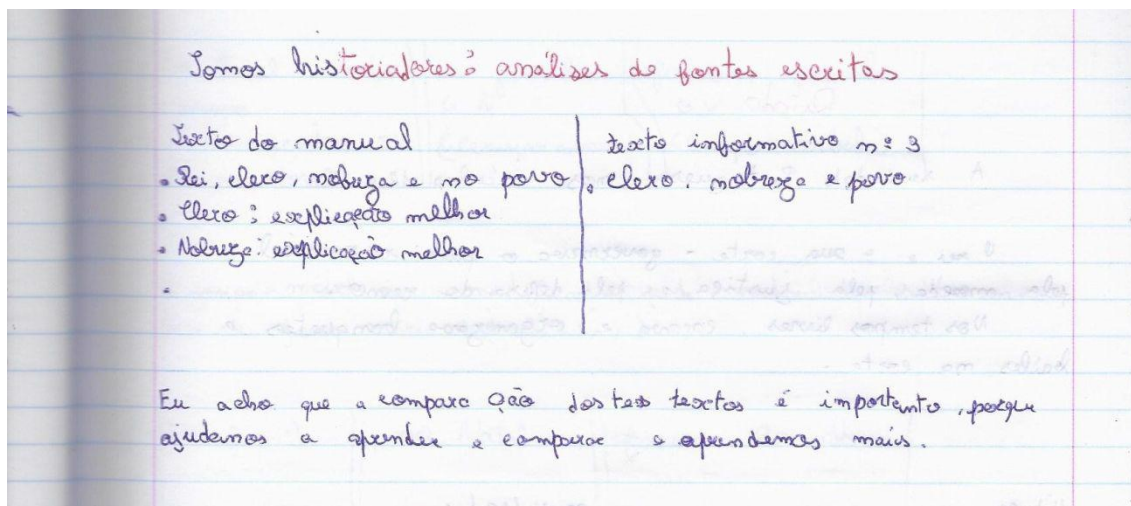 Somos historiadores: análises de fontes escritas
Texto do manual
. Rei, clero, nobreza e no povo
. Clero: explicação melhor
. Nobreza: explicação melhor
.
texto informativo nº 3
. clero, nobreza e povo
Eu acho que a comparação dostes textos é importanto, porque
ajudemos a aprender e comparar e aprendemos mais.